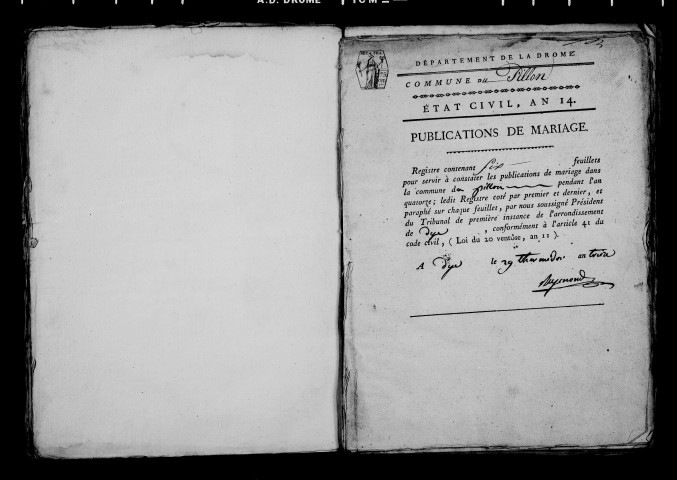 A.D. DROME
DÉPARTEMENT DE LA DROME
COMMUNE DU Pillon
ÉTAT CIVIL, AN 14.
PUBLICATIONS DE MARIAGE.
Registre contenant Six feuillets
pour servir à constater les publications de mariage dans
la commune du pillon pendant l'an
quatorze; ledit Registre coté par premier et dernier, et
paraphé sur chaque feuilles, par nous soussigné Président
du Tribunal de première instance de l'arrondissement
de dye, conformément à l'article 41 du
code civil, (Loi du 20 ventôse, an 11).
A dye le 29 thermidor an treize